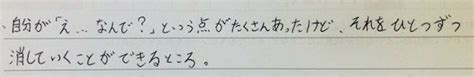 ・自分が「え…なんで？」という点がたくさんあったけど、それをひとつずつ
消していくことができるところ。